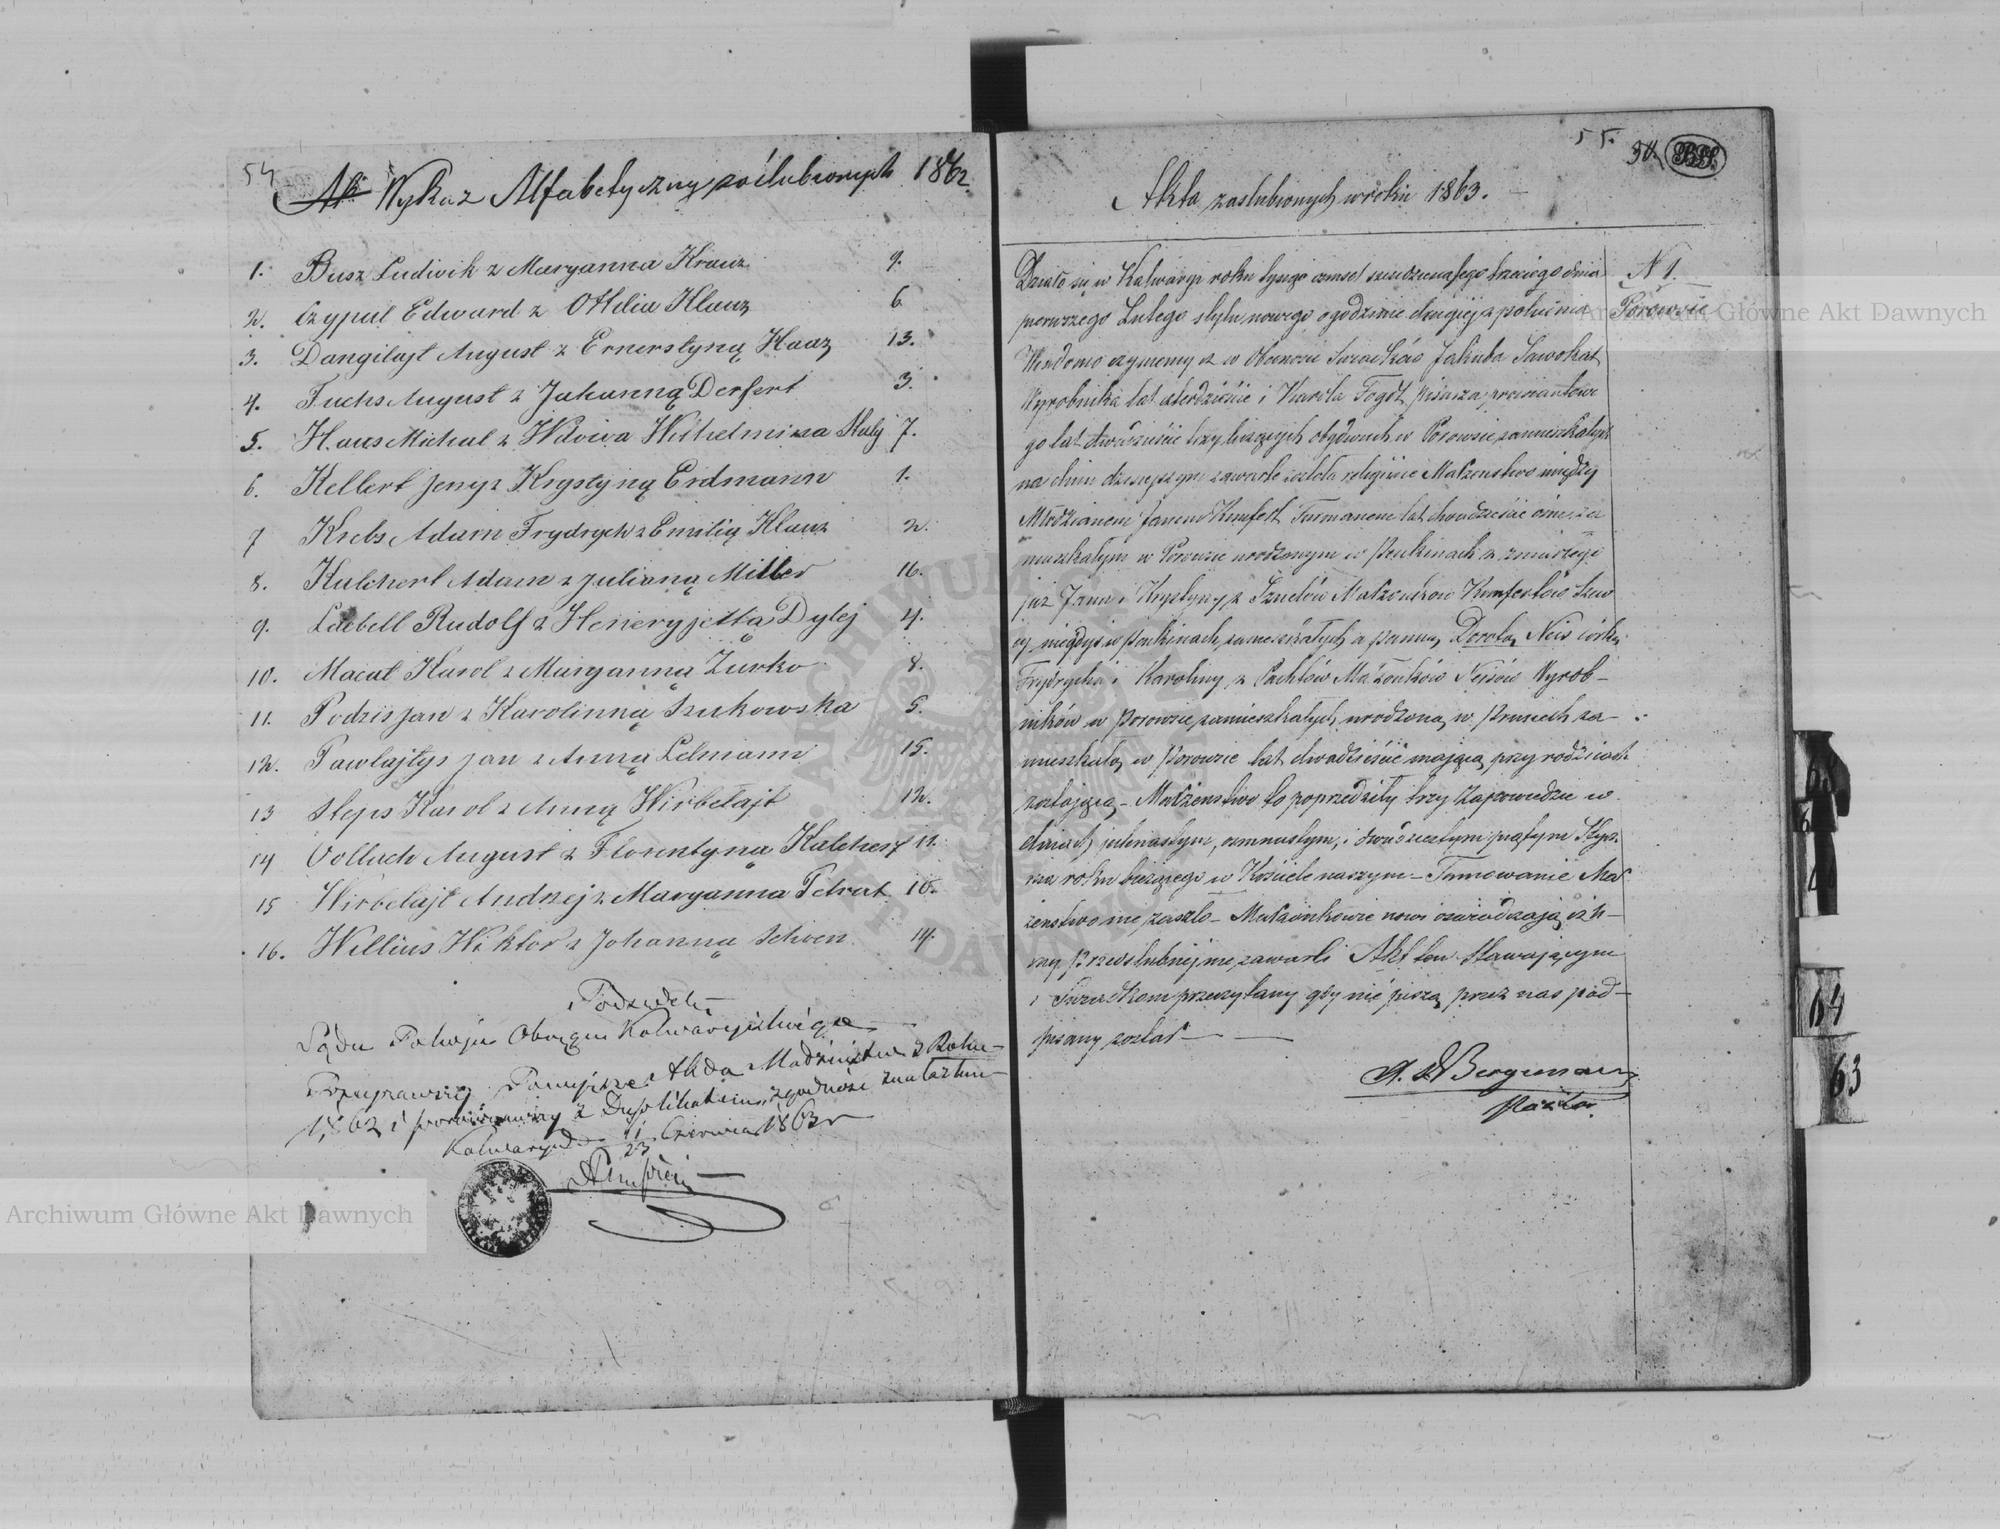 54
Wykaz Alfabetyczny zaślubionych 1862
1. Busz Ludwik z Maryanna Krauz 9.
2. Czypul Edward z Ottilia Klauz 6
3. Dangilajt August z Ernerstyną Haaz 13.
4. Fuchs August z Johanną Derfert 3.
5. Haus Michał z Wdowa Wilhelmina 7.
6. Kellert Jerzy z Krystyną Erdmann 1.
7 Krebs Adam Frydrych z Emilią Klauz 2.
8. Kulchert Adam z Julianą Miller 16.
9. Laebell Rudolf z Heneryjettą Dylej 4.
10. Macat Karol z Maryanną Zurko 8.
11. Podzis Jan z Karolinną Szukowska 5.
12. Pawlajtys Jan z Anną Lelmann 15.
13 Steps Karol z Anną Wirbelajt 12.
14 Vollach August z Florentyną Kalchert 11.
15 Wirbelajt Andrzej z Maryanna Petrat 10.
16. Willius Wiktor z Johanną Schwen 14.
Podsędek
Sądu Pokoju Okręgu Kalwaryjskiego
Przejrzawszy Powyższe Akta Małżeństw z Roku
1862 i porównawszy z Duplikatem, zgodność znalazłem
Kalwarya d. 11/23 Czerwca 1863 r
55.
Akta zaslubionych w roku 1863.
N 1.
Porowsie
Działo się w Kalwaryi roku tysiąc osmset szesdziesiątego trzeciego dnia
pierwszego Lutego stylu nowego o godzinie drugiej z południa
Wiadomo czynimy iż w Obecności Świadków Jakuba Sawokat
Wyrobnika lat czterdzieście i Karola Fogt pisarza prowiantowe
go lat dwadzieście trzy liczących obydwuch w Porowsie zamieszkałych
na dniu dzisiejszym zawarte zostało religijne Małżenstwo między
Młodzianem Janem Kumfert Furmanem lat dwadzieście
mieszkałym w Porowsie urodzonym w z zmarłego
już Jana i Krystyny z Małżonków Kumfertów
niegdys w zamieszkałych a panną Dorotą Neis córką
Frydrycha i Karoliny z Małżonków Neisów Wyrob-
ników w Porowsie zamieszkałych urodzoną w Prusiech za-
mieszkałą w Porowsie lat dwadzieście mającą przy rodzicach
zostającą - Małżenstwo to poprzedziły trzy Zapowiedzie w
dniach jedenastym, osmnastym, i dwudziestym piątym Stycz-
nia roku bieżącego w Kościele naszym - Tamowanie Mał
żenstwo nie zaszło - Małżonkowie nowi oświadczają iż u-
mowy Przedslubnej nie zawarli Akt ten Stawającym
i Świadkom przeczytany gdy nie piszą przez nas pod-
pisany został
Bergmann
Pastor
64
63
Archiwum Główne Akt Dawnych
Archiwum Główne Akt Dawnych